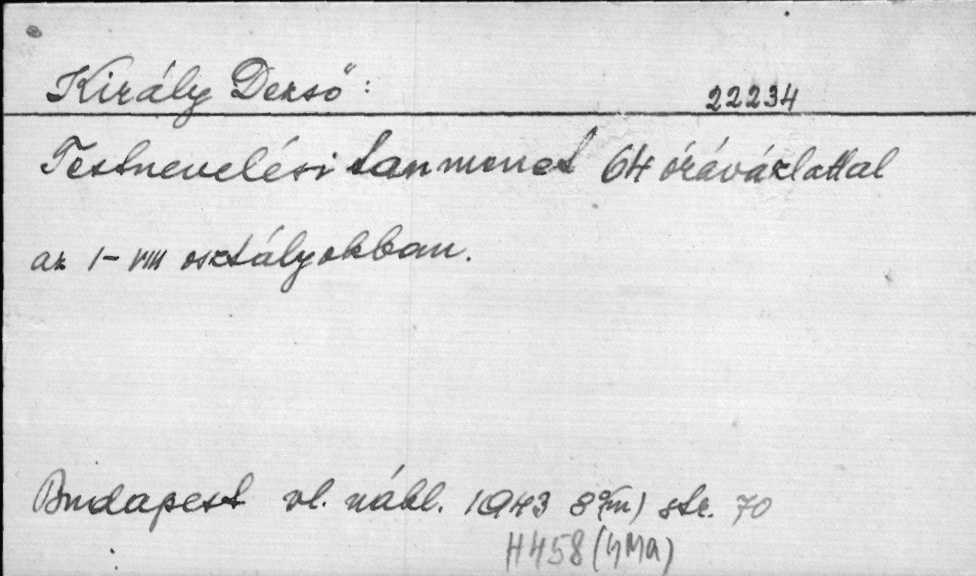 Király Dezső: 22234
Testnevelési tanmenet 64 óravázlattal
az I-VIII osztályokban.
Budapest vl. nákl. 1943 8°(m) str. 70
H458 (4Ma)